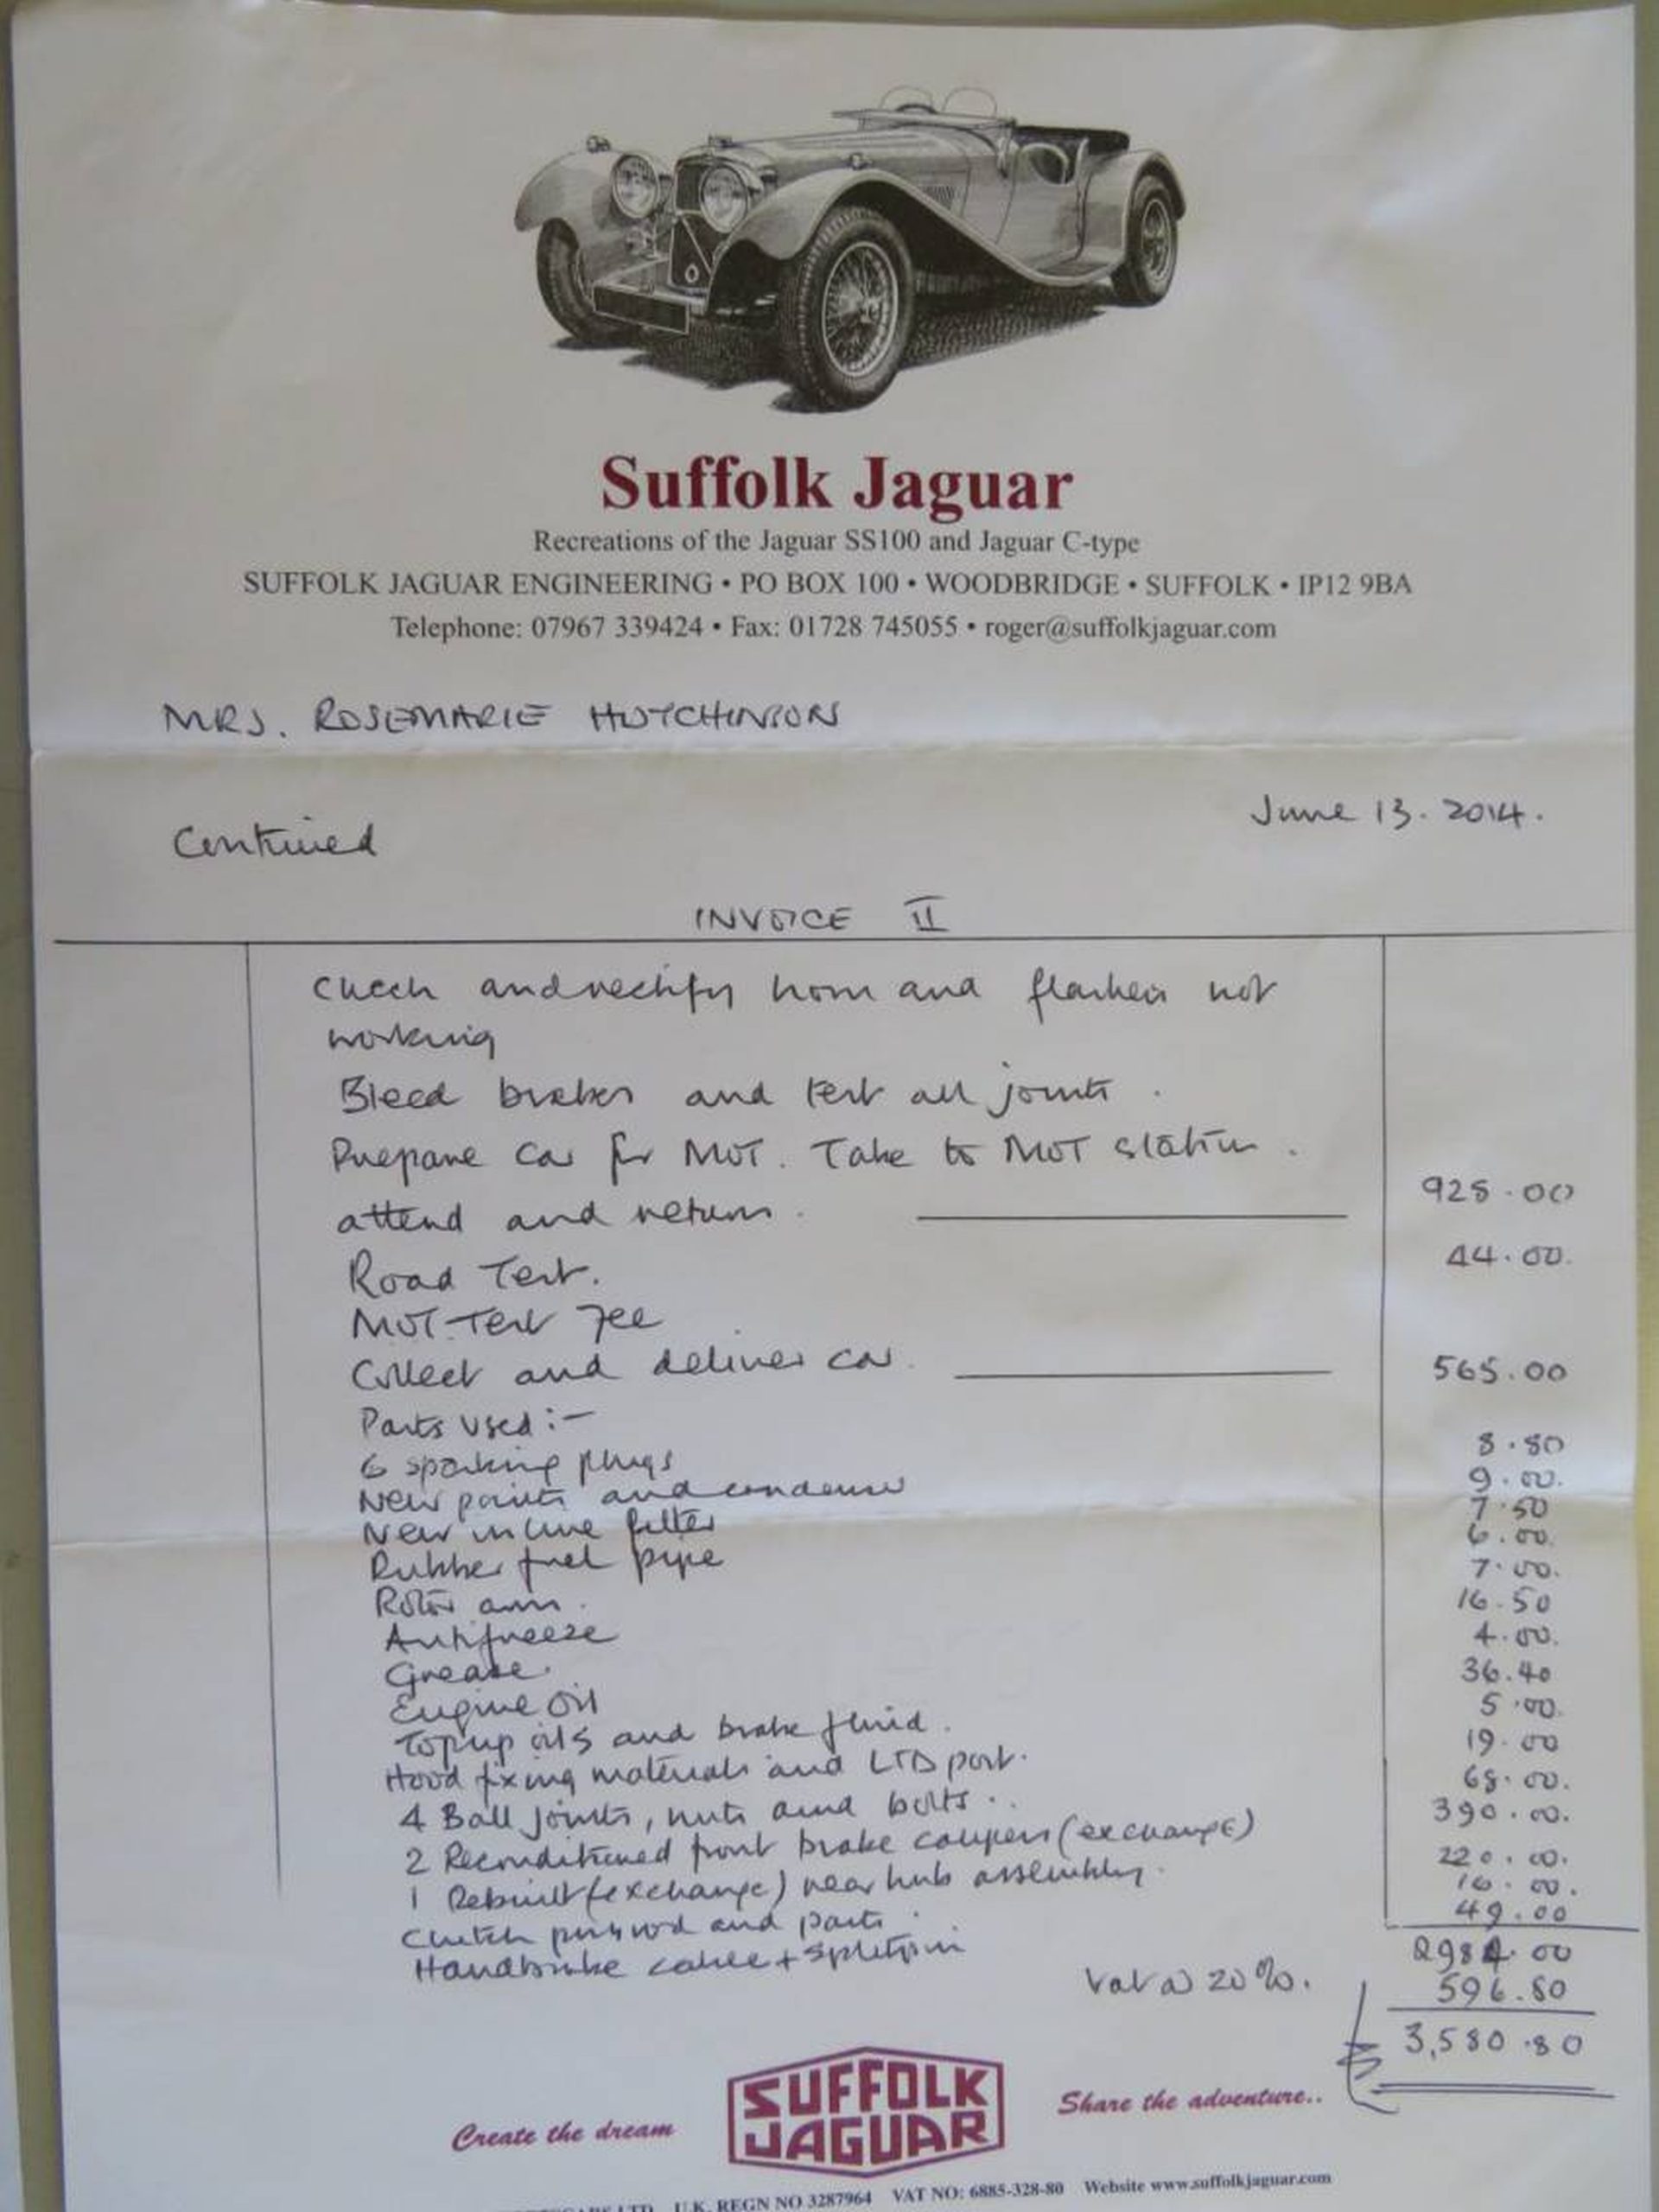 Suffolk Jaguar
Recreations of the Jaguar SS100 and Jaguar C-type
SUFFOLK JAGUAR ENGINEERING • PO BOX 100 • WOODBRIDGE • SUFFOLK • IP12 9BA
Telephone: 07967 339424 • Fax: 01728 745055 • roger@suffolkjaguar.com
MRS. ROSEMARIE HUTCHINSON
June 13. 2014.
Continued
INVOICE II
Check and rectify horn and flashers not
working
Bleed brakes and test all joints.
Prepare Car for MOT. Take to MOT station.
attend and return. 925.00
Road Test. 44.00.
MOT Test Fee
Collect and deliver car. 565.00
Parts Used:-
6 sparking plugs 8.80
New points and condenser 9.00.
New inline filter 7.50
Rubber fuel pipe 6.00.
Rotor arm. 7.00.
Antifreeze 16.50
Grease. 4.00.
Engine Oil 36.40
Top up oils and brake fluid. 5.00.
Hood fixing materials and LTD port. 19.00
4 Ball joints, nuts and bolts. 68.00.
2 Reconditioned front brake calipers (exchange) 390.00.
1 Rebuilt (exchange) rear hub assembly. 220.00.
Clutch pushrod and parts 16.00.
Handbrake cable + splitpin 49.00
2984.00
Vat @ 20%. 596.80
£ 3,580.80
Create the dream
SUFFOLK
JAGUAR
Share the adventure..
LTD U.K. REGN NO 3287964 VAT NO: 6885-328-80 Website www.suffolkjaguar.com